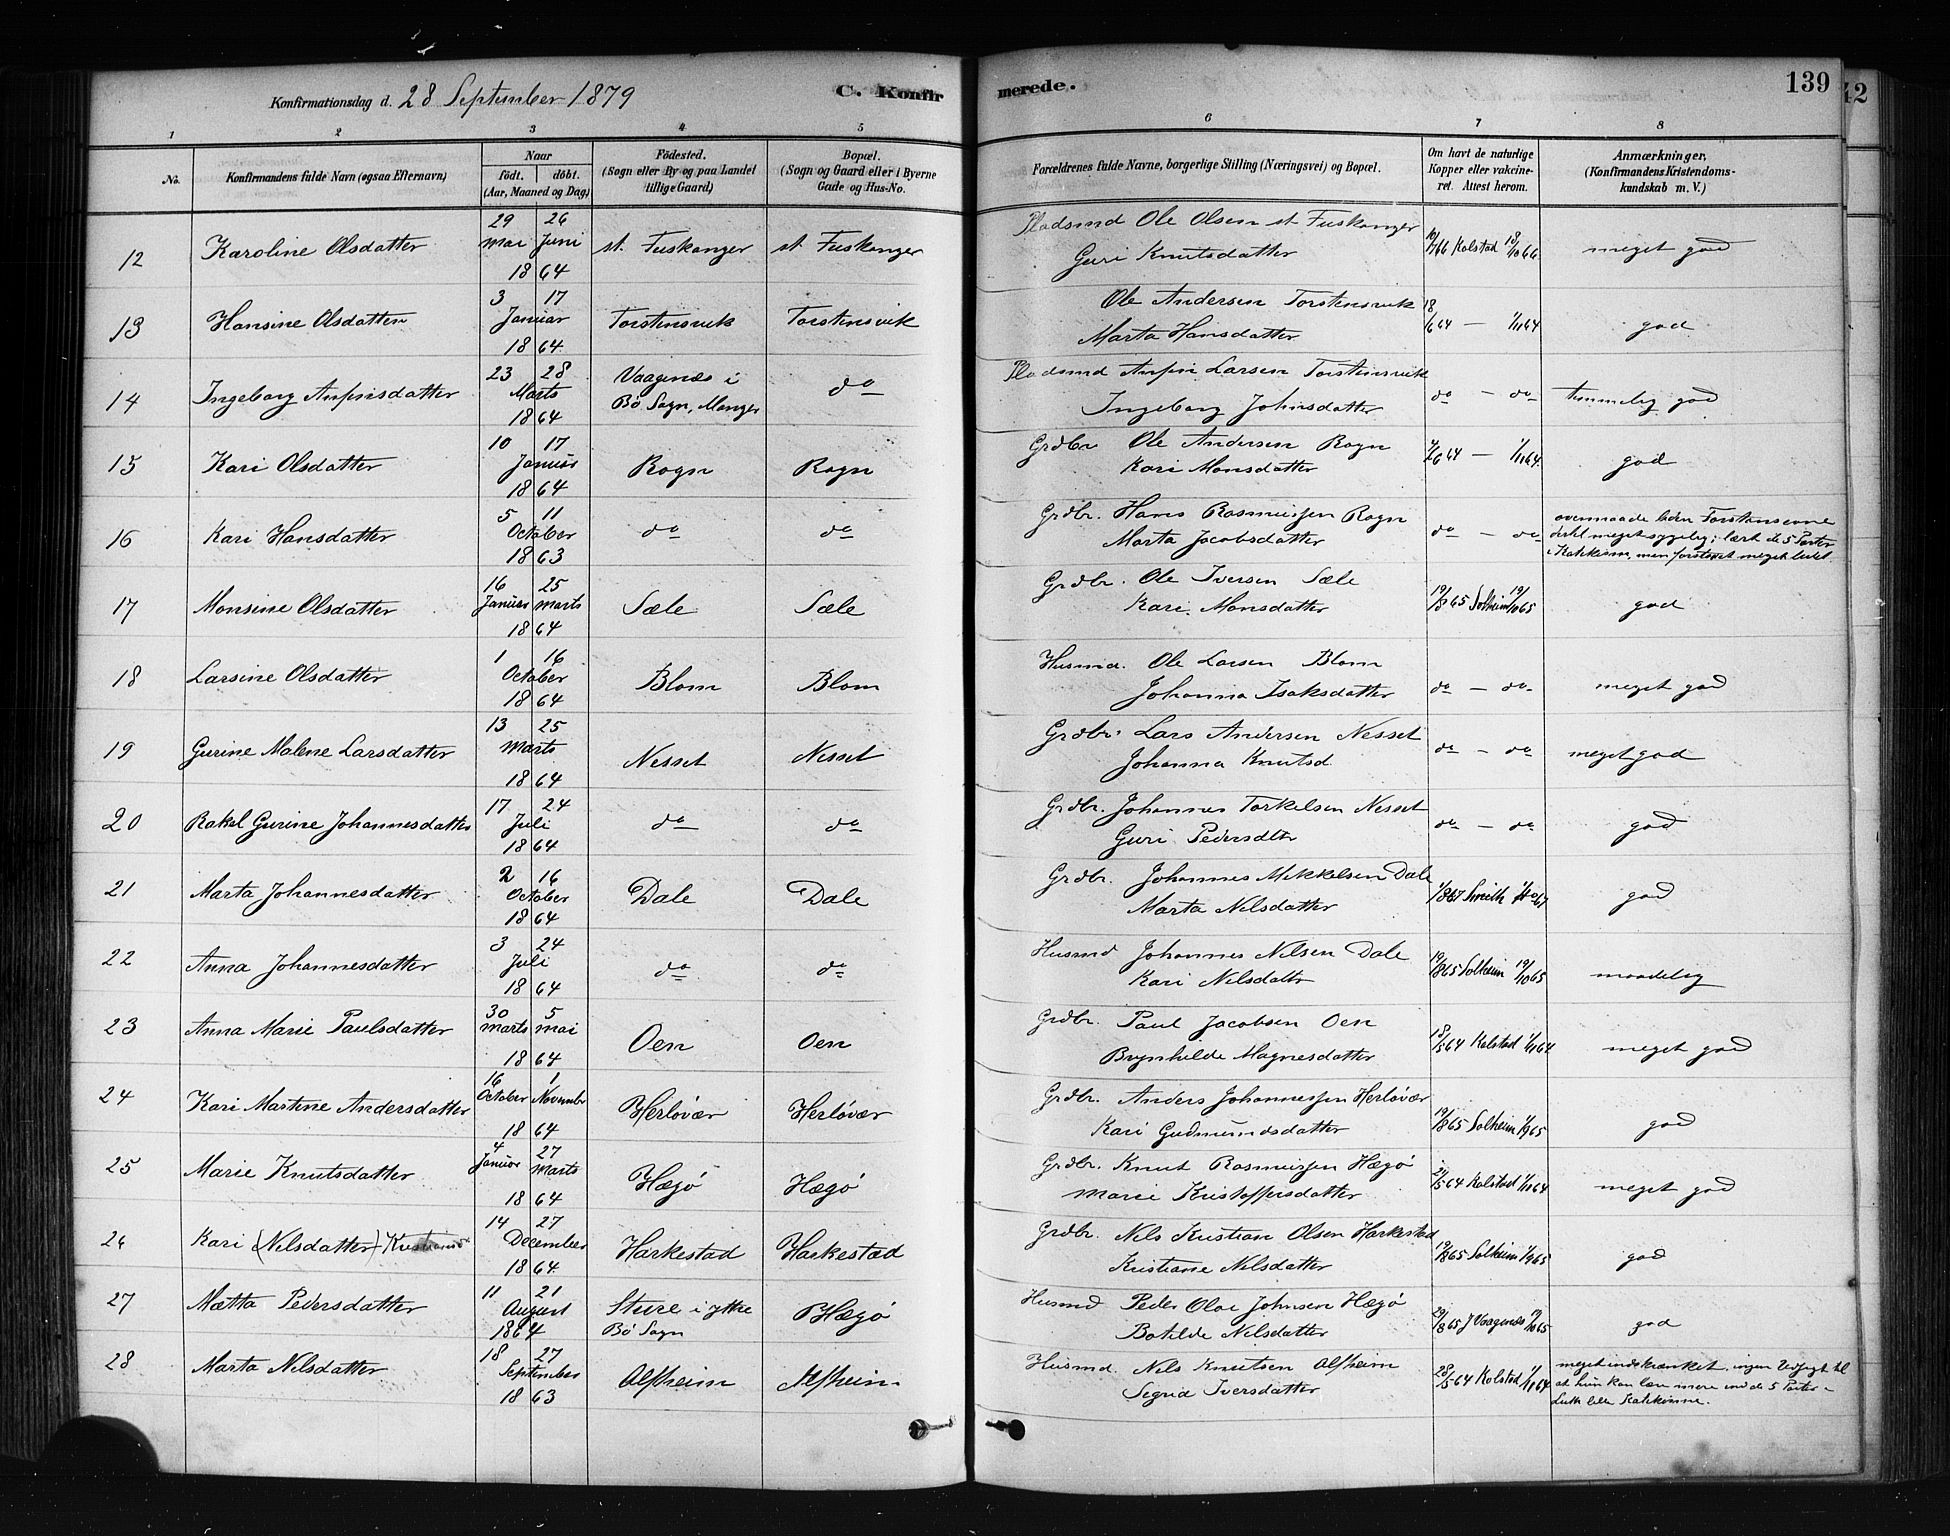 Konfirmationsdag d. 28 September 1879
C. Konfirmerede. 139
42
1 2 3 4 5 6 7 8
No. Konfirmandens fulde Navn (ogsaa Efternavn) Naar født. døbt. (Aar, Maaned og Dag) Fødested. (Sogn eller By og paa Landet tillige Gaard) Bopæl. (Sogn og Gaard eller i Byerne Gade og Hus-No. Forældrenes fulde Navne, borgerlige Stilling (Næringsvei) og Bopæl. Om havt de naturlige Kopper eller vakcineret. Attest herom. Anmærkninger, (Konfirmandens Kristendomskundskab m. V.)
12 Karoline Olsdatter 29 Mai 26 Juni 1864 st. Fuskanger st. Fuskanger Pladsmd Ole Olsen st. Fuskanger
Guri Knutsdatter Kolstad meget god
13 Hansine Olsdatter 3 17 Januar 1864 Torstensvik Torstensvik Ole Andersen Torstensvik
Marta Hansdatter 18/6 64 — 1/11 64 god
14 Ingeborg Anfinsdatter 23 28 Marts 1864 Vaagenæs i Bö Sogn, Manger do Pladsmd Anfin Larsen Torstensvik
Ingeborg Johnsdatter do — do temmelig god
15 Kari Olsdatter 10 17 Januar 1864 Rogn Rogn Grdbr. Ole Andersen Rogn
Kari Monsdatter — 1/11 64 god
16 Kari Hansdatter 5 11 October 1863 do do Grdbr. Hans Rasmussen Rogn
Marta Jacobsdatter do — do overmaade liden Forstansevne
meget sygelig; lært de 5 Parter
i Katekism. men forstaaet meget lidet.
17 Monsine Olsdatter 16 Januar 25 Marts 1864 Sæle Sæle Grdbr. Ole Iversen Sæle
Kari Monsdatter 19/8 65 Solheim 19/10 65 god
18 Larsine Olsdatter 1 16 October 1864 Blom Blom Husmd. Ole Larsen Blom
Johanna Isaksdatter do — do meget god
19 Gurine Malene Larsdatter 13 25 Marts 1864 Nesset Nesset Grdbr. Lars Andersen Nesset
Johanna Knutsd. do — do meget god
20 Rakel Gurine Johannesdatter 17 24 Juli 1864 do do Grdbr. Johannes Torkelsen Nesset
Guri Pedersdtr do — do god
21 Marta Johannesdatter 2 16 October 1864 Dale Dale Grdbr. Johannes Mikkelsen Dale
Marta Nilsdatter Smith god
22 Anna Johannesdatter 3 24 Juli 1864 do do Husmd Johannes Nilsen Dale
Kari Nilsdattr 19/8 65 Solheim 19/10 65 maadelig
23 Anna Marie Paulsdatter 30 Marts 5 Mai 1864 Oen Oen Grdbr. Paul Jacobsen Oen
Brynhilde Magnesdatter 18/5 64 Kolstad 1/11 64 meget god
24 Kari Martine Andersdatter 16 October 1 November 1864 Herlövær Herlövær Grdbr. Anders Johannessen Herlövær
Kari Gudmundsdatter 19/8 65 Solheim 1/9 65 god
25 Marie Knutsdatter 4 Januar 27 Marts 1864 Hægö Hægö Grdbr. Knut Rasmussen Hægö
Marie Kristoffersdatter Kolstad 1/11 64 meget god
26 Kari (Nilsdatter) 14 27 December 1864 Harkestad Harkestad Grdbr. Nils Kristian Olsen Harkestad
Kristiane Nilsdatter 19/8 65 Solheim 1/9 65 god
27 Mætta Pedersdatter 11 21 August 1864 Sture i ytre Bö Sogn Hægö Husmd Peder Olai Johnsen Hægö
Botilde Nilsdatter 29/8 65 J Vaagenæs 19/10 65 god
28 Marta Nilsdatter 18 27 September 1863 Alfheim Alfheim Husmd. Nils Knutsen Alfheim
Segrid Iversdatter 28/5 64 Kolstad 1/11 64 meget indskrænket, ingen Udsigt til
at hun kan lære mere end de 5 Parter i
Luth. lille Katekisme.